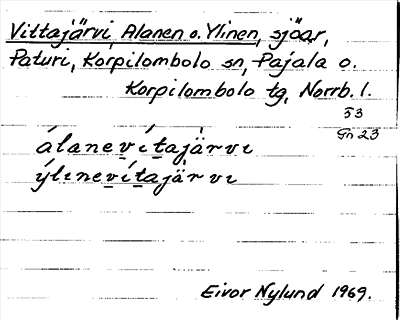 Vittajärvi, Alanen o. Ylinen, sjöar,
Paturi, Korpilombolo sn, Pajala o.
Korpilombolo tg, Norrb. l.
53
Gn 23
álanevítajärvi
ýlinevítajärvi
Eivor Nylund 1969.